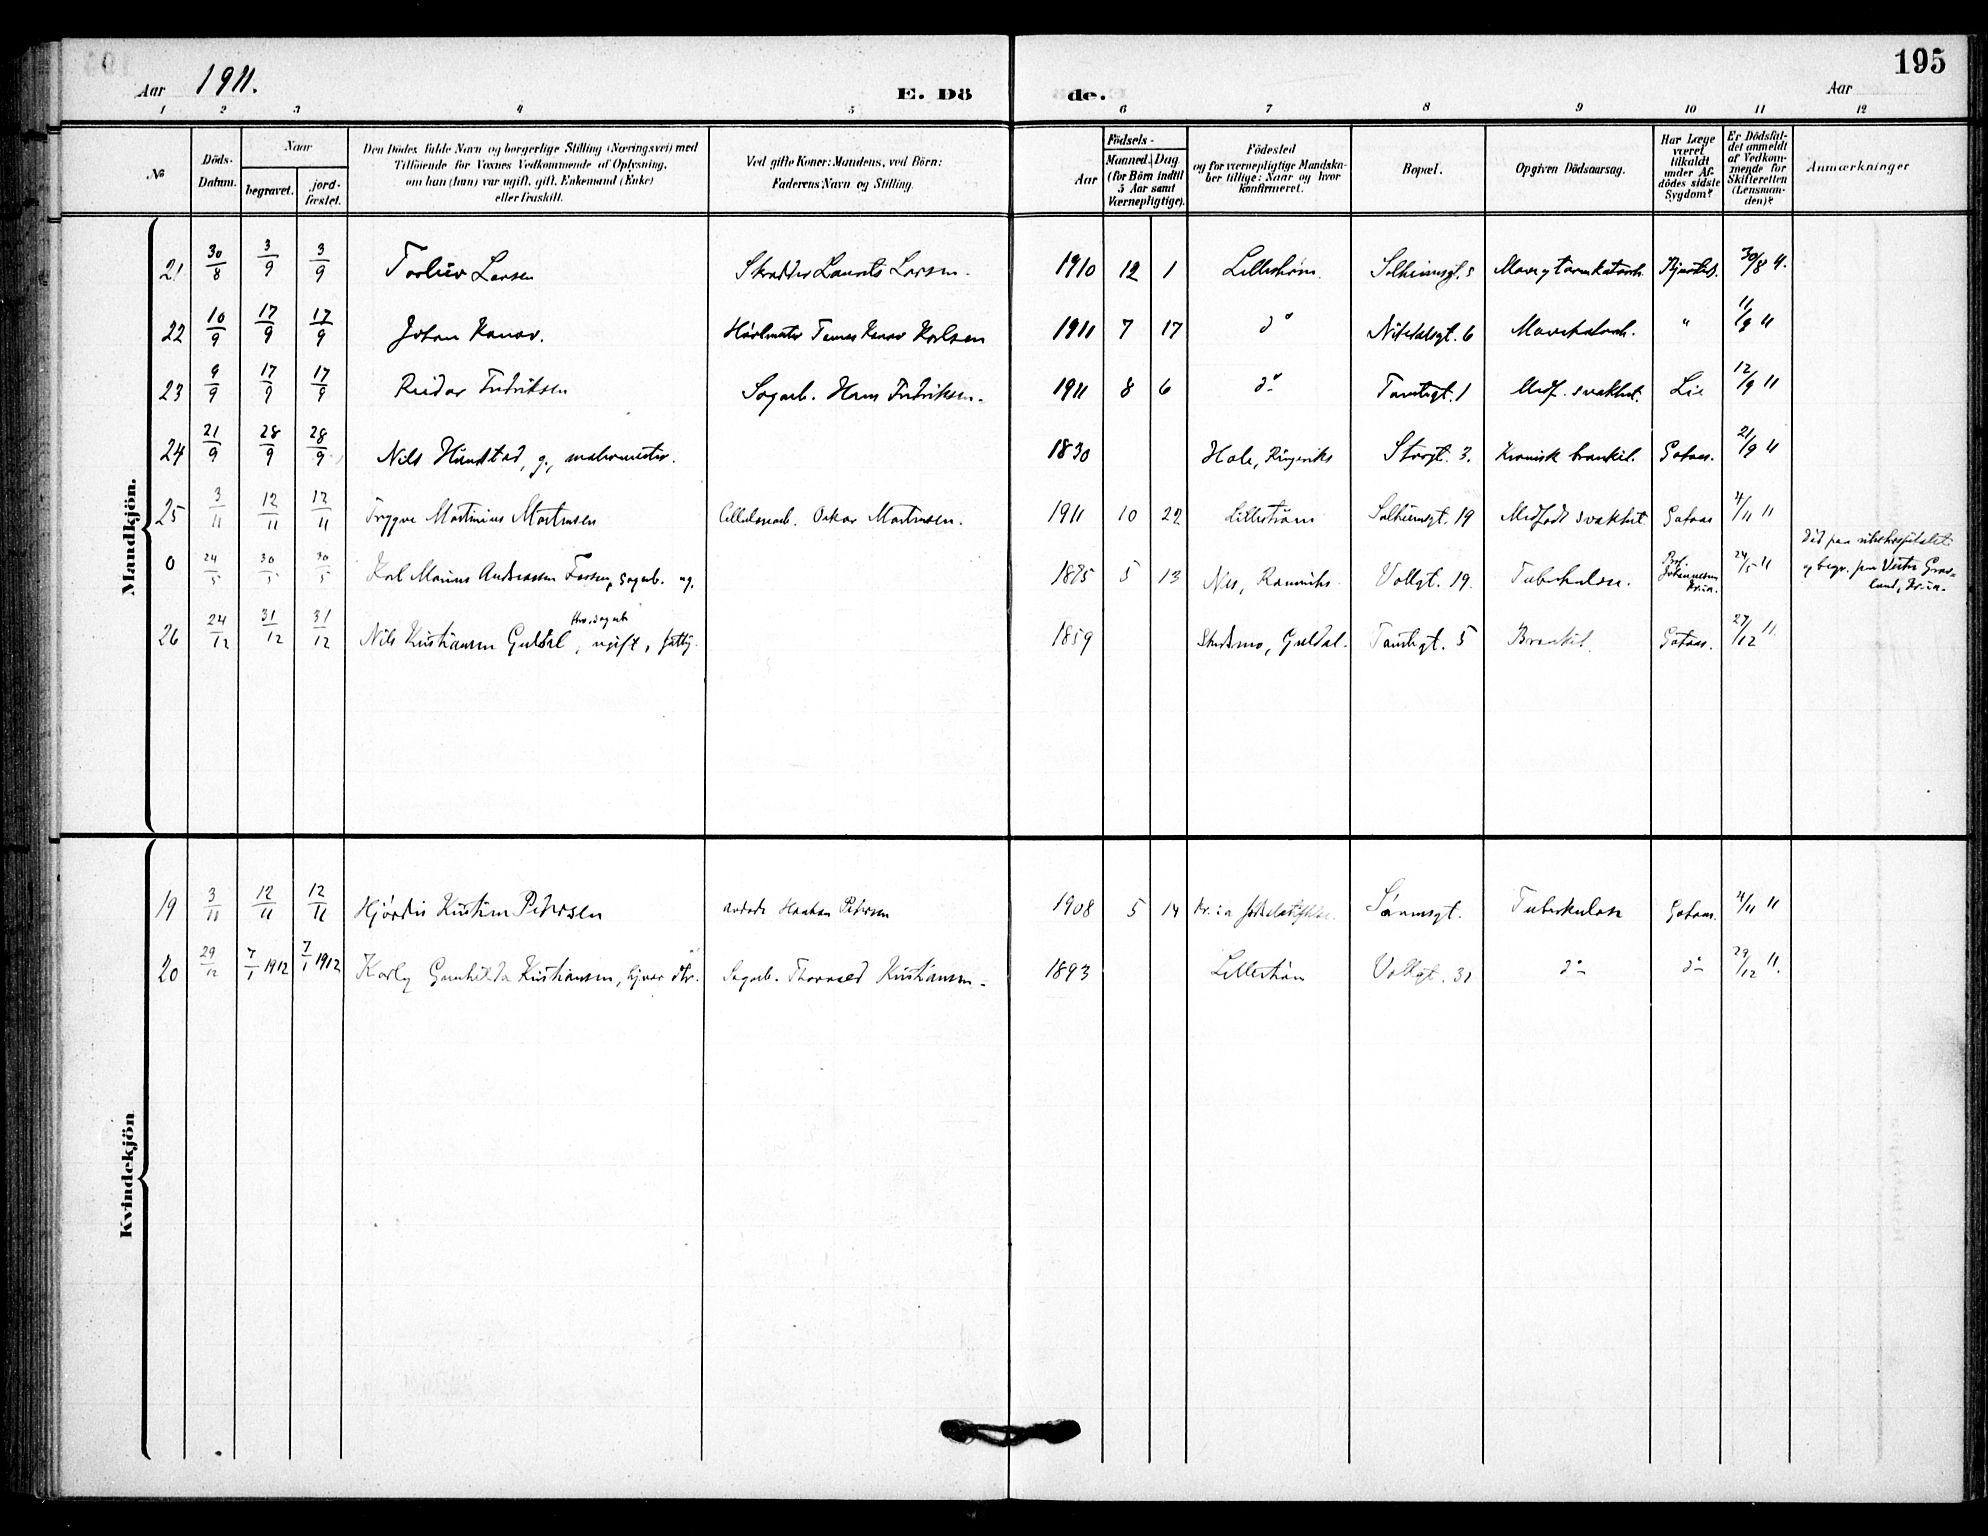 195
Aar 1911. E. Dö de. Aar
1 2 3 4 5 6 7 8 9 10 11 12
No Döds-Datum. Naar begravet. jord-fæstet. Den Dödes fulde Navn og borgerlige Stilling (Næringsvei) med Tilföiende for Voxnes Vedkommende af Oplysning, om han (hun) var ugift, gift, Enkemand (Enke) eller fraskilt. Ved gifte Koner: Mandens, ved Börn: Faderens Navn og Stilling. Aar Födsels- Maaned. Dag (for Börn indtil 5 Aar samt Værnepligtige). Födested og for værnepligtige Mandskaber tillige: Naar og hvor konfirmeret. Bopæl. Opgiven Dödsaarsag. Har Læge været tilkaldt under Afdödes sidste Sygdom? Er Dödsfaldet anmeldt af Vedkommende for Skifteretten (Lensmanden)? Anmærkninger
Mandkjön.
21 30/8 3/9 3/9 Larsen Skrædder Laurits Larsen. 1910 12 1 Lillestrøm. Solheimsgt. 5 Mave og tarmkatarrh. 30/8 11.
22 10/9 17/9 17/9 Johan Kanov. Karlsen 1911 7 17 do Nitedalsgt. 6 Mavekatarrh. " 11/9 11
23 9/9 17/9 17/9 Reidar Fredriksen Sagarb. Hans Fredriksen. 1911 8 6 do Tomtegt. 1 Medf. svakhet. Lie 12/9 11
24 21/9 28/9 28/9 Nils g., malermester. 1830 Hole, Ringerike Storgt. 3. Kronisk bronkit. Gotaas. 21/9 11
25 3/11 12/11 12/11 Trygve Martinius Martinsen Cellulosearb. Oskar Martinsen. 1911 10 22 Lillestrøm Solheimsgt. 19 Medfødt svakhet Gotaas 4/11 11
0 24/5 30/5 30/5 Karl Marius Andreassen sagarb. ug. 1875 5 13 Nes, Romerike Vollgt. 19. Tuberkulose. Prof. Johannessen Kr.ia. 24/5 11 Død paa rikshospitalet og begr. paa Vestre Gravlund, Kr.ia.
26 24/12 31/12 31/12 Nils Kristiansen Guldal, ugift, fattig. 1859 Guldal. Tomtegt. 5 Bronkit. Gotaas. 27/12 11.
Kvindekjön
19 3/11 12/11 12/11 Hjørdis Kristine Petersen Haakon Petersen 1908 5 14 Kr.ia fødselsstiftelse. Tuberkulose Gotaas. 4/11 11
20 29/12 7/1 1912 7/1 1912 Karly Gunhilda Kristiansen, hjemmev. dtr. Sagarb. Thorvald Kristiansen. 1893 Lillestrøm Vollgt. 31 do do 29/12 11.